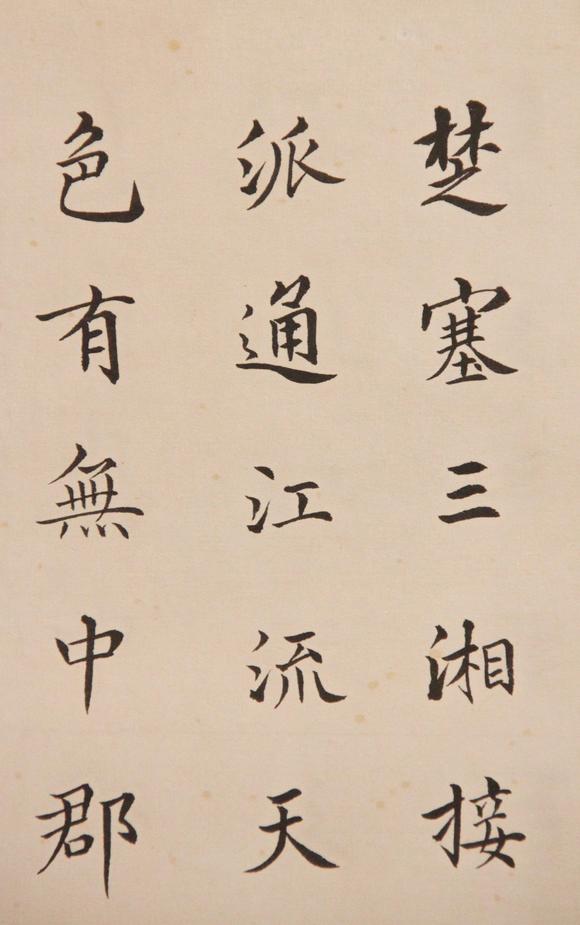 楚塞三湘接
派通江流天
色有無中郡